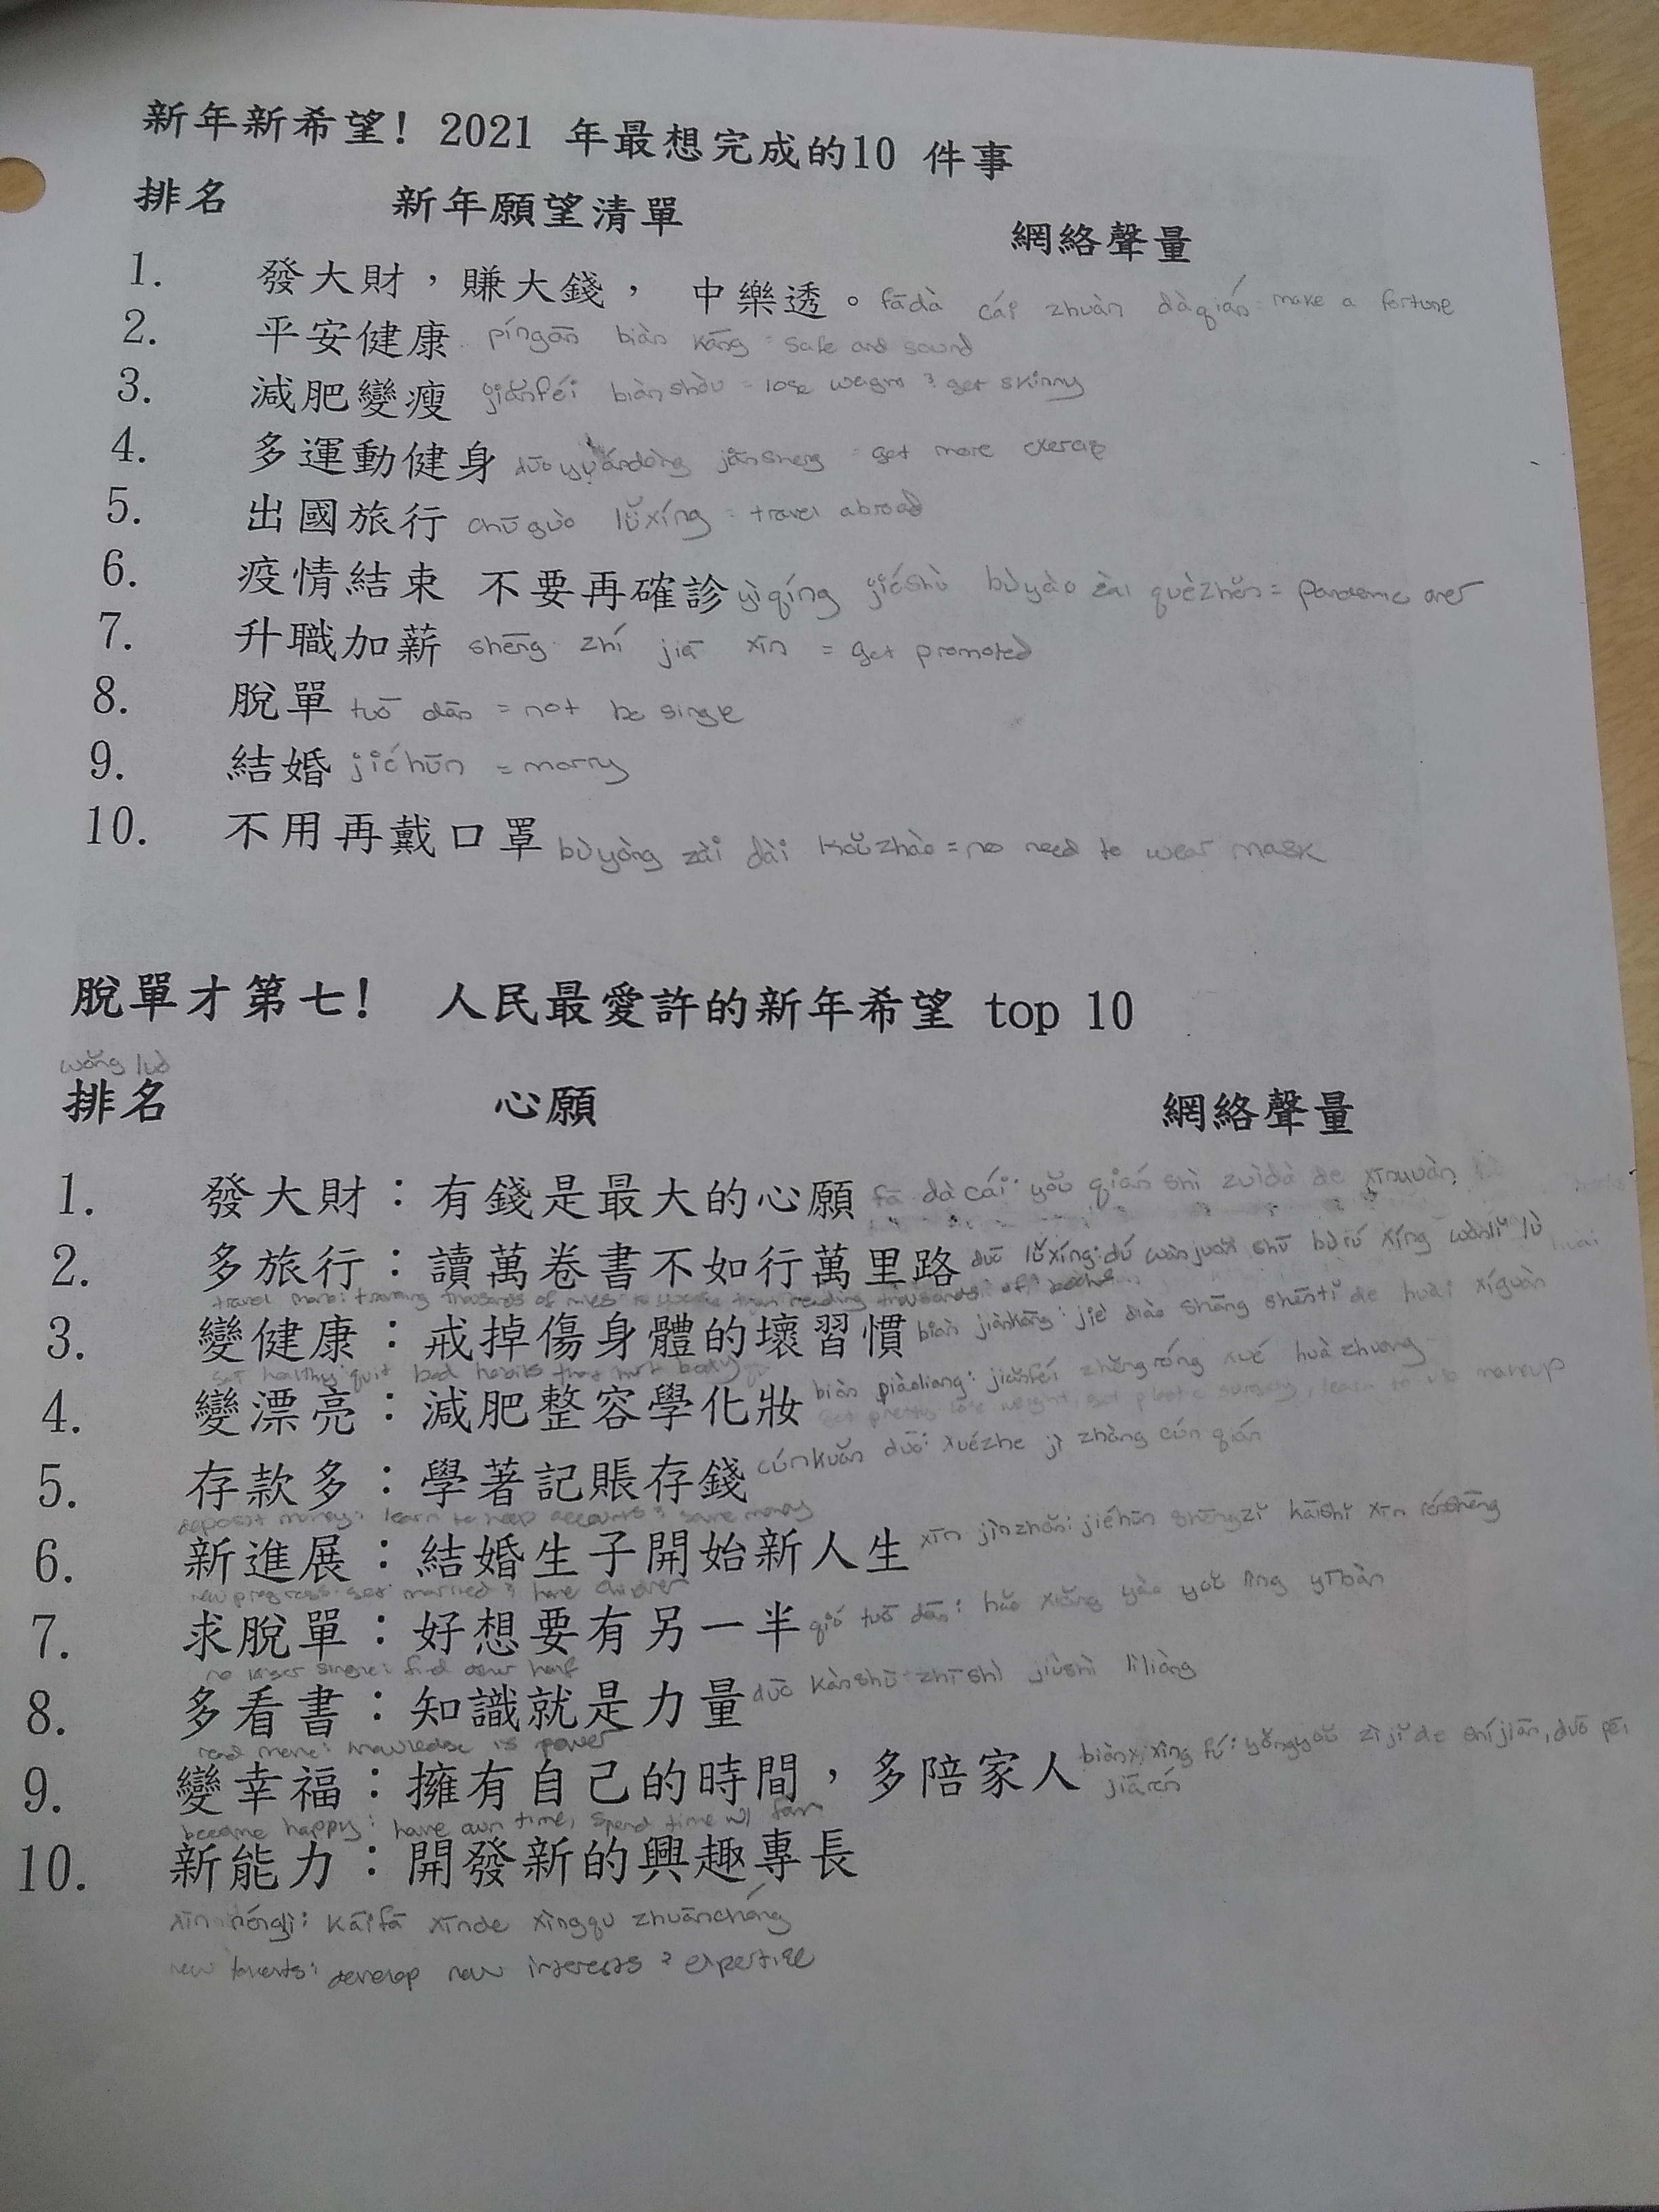 新年新希望! 2021 年最想完成的10 件事
排名 新年願望清單 網絡聲量
1. 發大財,賺大錢, 中樂透。fādà cáí zhuàn dàqián = make a fortune
2. 平安健康 píngān biàn kāng = safe and sound
3. 減肥變瘦 jiǎnféi biànshòu = lose weight & get skinny
4. 多運動健身 duō jiānsheng = get more exercise
5. 出國旅行 chū guò lǚxíng = travel abroad
6. 疫情結束 不要再確診 yìqíng jiéshù bùyào zài quèzhěn = pandemic over
7. 升職加薪 shēng zhí jiā xīn = get promoted
8. 脫單 tuō dān = not be single
9. 結婚 jiéhūn = marry
10. 不用再戴口罩 bùyòng zài dài kǒuzhào = no need to wear mask
脫單才第七! 人民最愛許的新年希望 top 10
wǎng luò
排名 心願 網絡聲量
1. 發大財:有錢是最大的心願 fā dà cái: yǒu qián shì zuìdà de
2. 多旅行:讀萬卷書不如行萬里路 duō lǚxíng: dú wànjuàn shū bùrú xíng wànlǐ lù
travel more: traveling thousands of miles than reading thousands of books
3. 變健康:戒掉傷身體的壞習慣 biàn jiànkāng: jiè diào shāng shēntǐ de huài xíguàn
get healthy: quit bad habits that hurt body
4. 變漂亮:減肥整容學化妝 biàn piàoliang: jiǎnféi zhěngróng xué huà zhuang
get pretty: lose weight, get plastic surgery, learn to makeup
5. 存款多:學著記賬存錢 cúnkuǎn duō: xuézhe jì zhàng cún qián
deposit money: learn to keep accounts & save money
6. 新進展:結婚生子開始新人生 xīn jìnzhǎn: jiéhūn shēngzǐ kāishǐ xīn rénshēng
new progress: get married & have children
7. 求脫單:好想要有另一半 qiú tuō dān: hǎo xiǎng yào yǒu lìng yībàn
no longer single: find other half
8. 多看書:知識就是力量 duō kànshū zhīshì jiùshì lìliàng
read more: knowledge is power
9. 變幸福:擁有自己的時間,多陪家人 biàn xìng fú: yǒngyǒu zìjǐ de shíjiān, duō péi
jiārén
become happy: have own time, spend time w/ fam
10. 新能力:開發新的興趣專長
xīn nénglì: kāifā xīnde xìngqu zhuāncháng
new talents: develop new interests & expertise